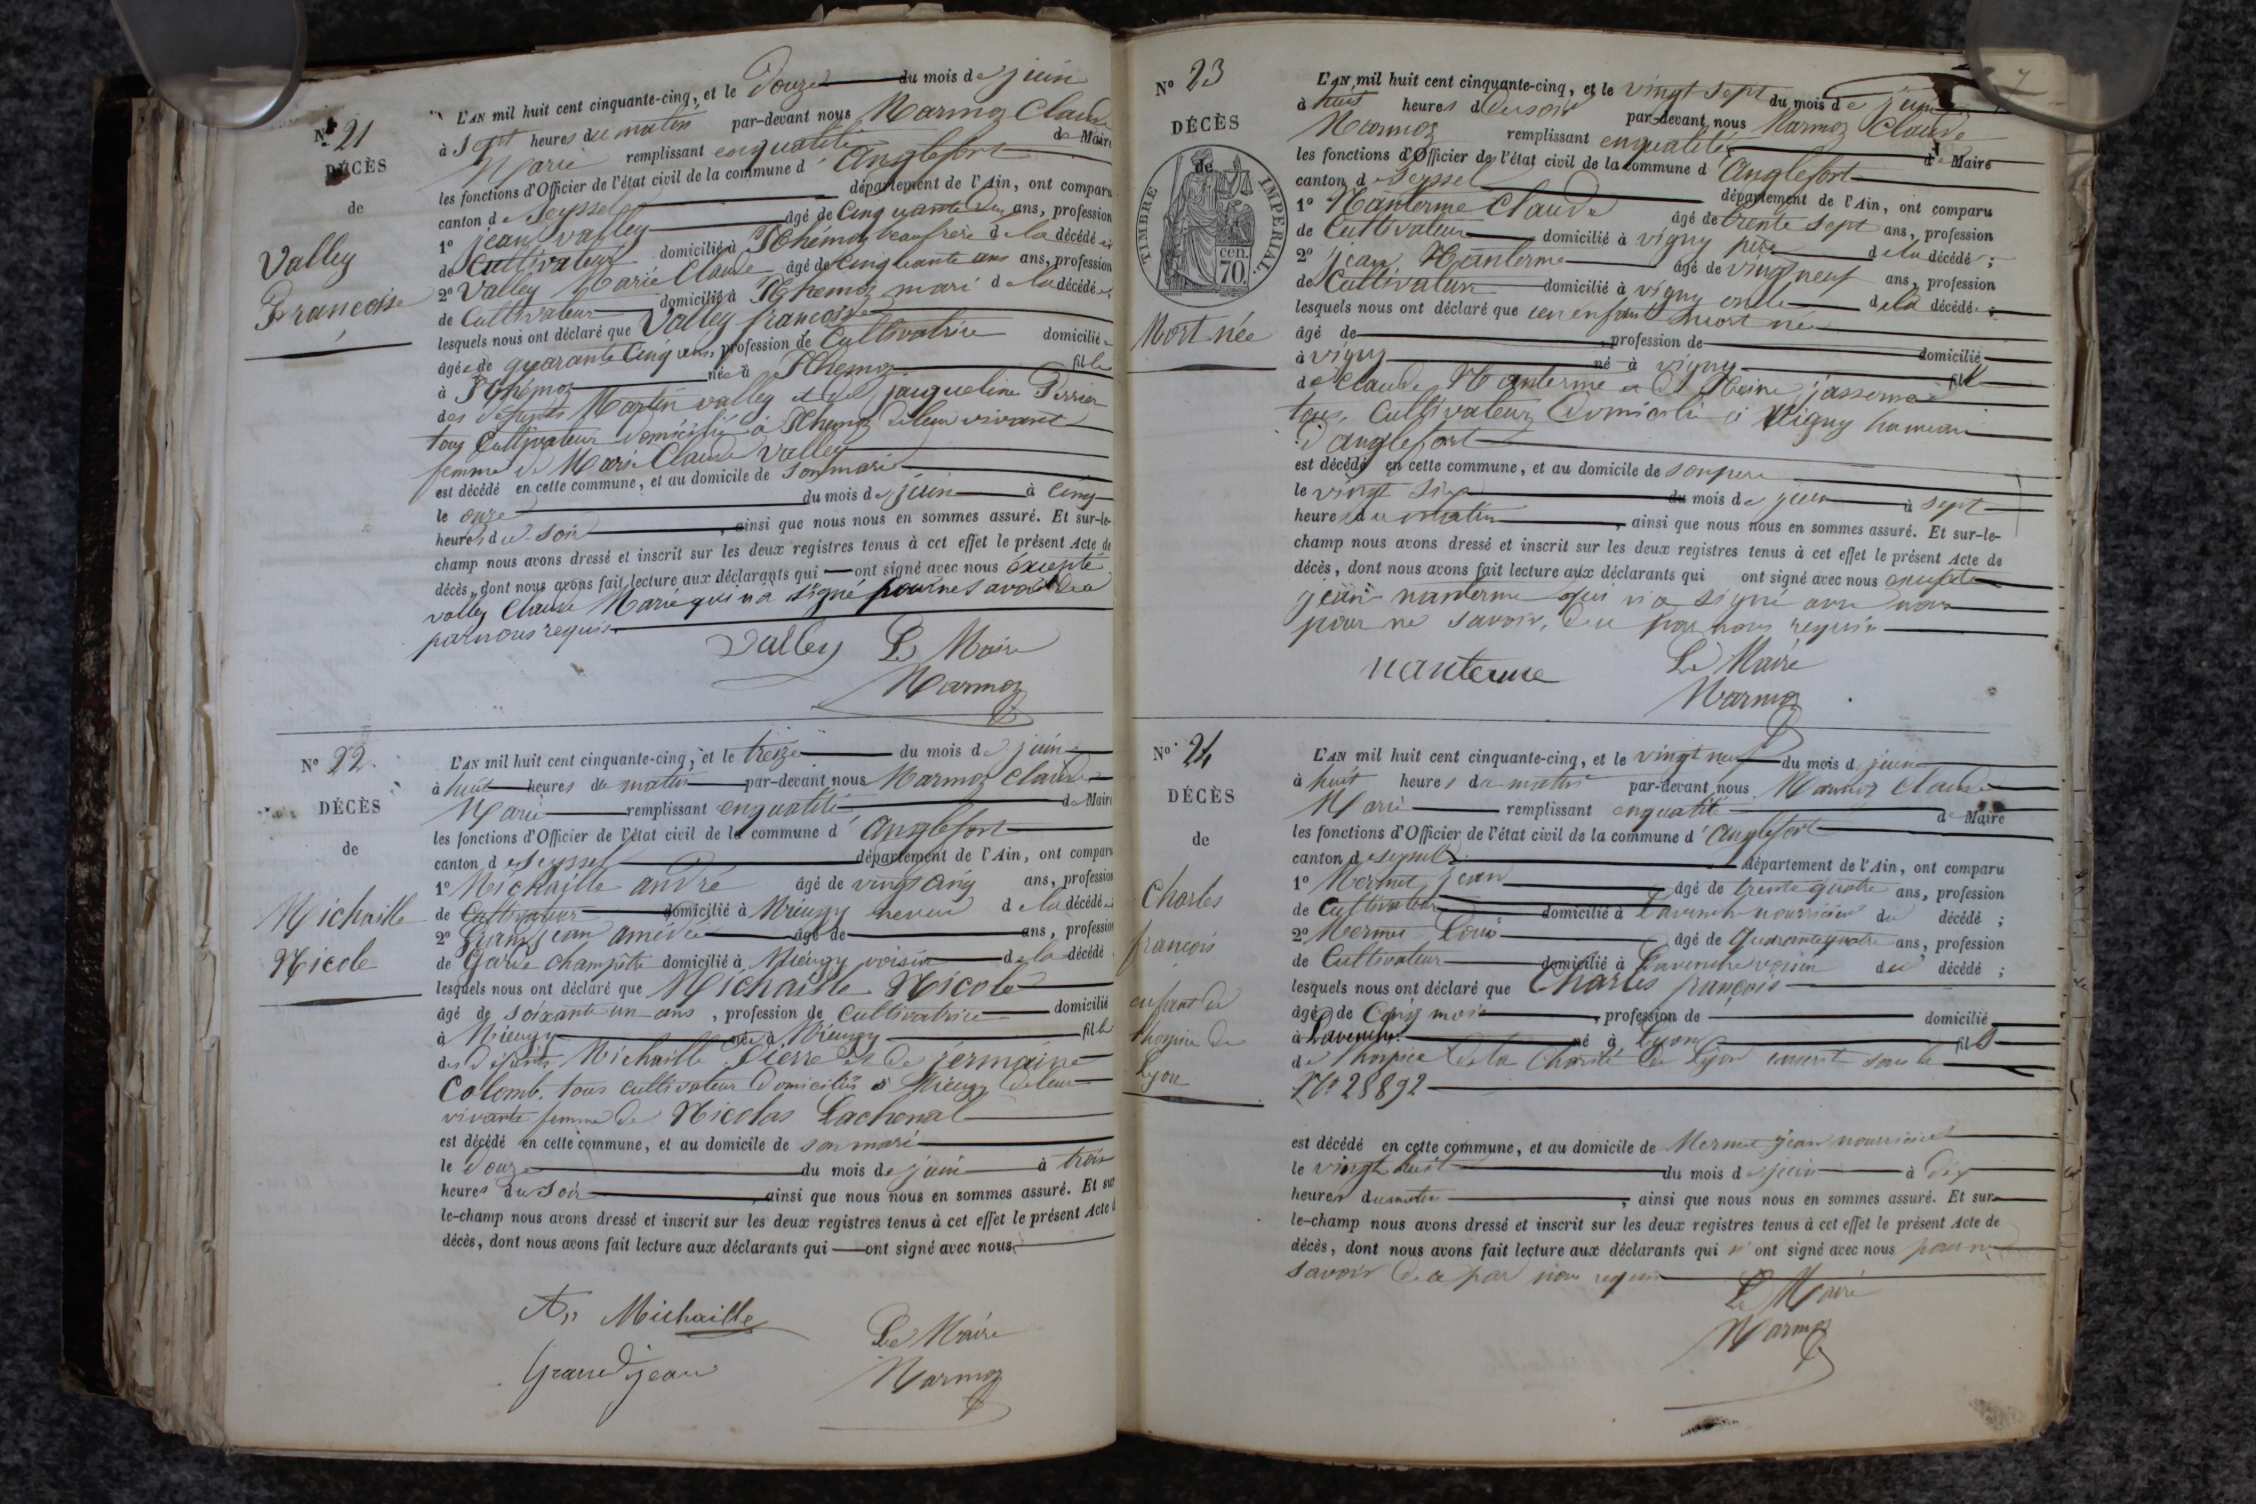 N° 21
DÉCÈS
de
Valley
Francoise
L'AN mil huit cent cinquante-cinq, et le Douze du mois de juin
à Sept heures du matin par-devant nous Marmoz Claude
Marie remplissant enqualité de Maire
les fonctions d'Officier de l'état civil de la commune d' Anglefort
canton de Seyssel département de l'Ain, ont comparu
1° jean valley âgé de Cinquante ans, profession
de Cultivateur domicilié à beaufrere de la décédée
2° Valley Marie Claude âgé de Cinquante ans ans, profession
de Cultivateur domicilié à mari de la décédée
lesquels nous ont déclaré que Valley francoise
âgée de quarante Cinq ans, profession de Cultivatrice domiciliée
à née à fille
des defunts Martin valley et de jacqueline Perrier
tous Cultivateur domicilié à de leur vivant
femme de Marie Claude Valley
est décédé en cette commune, et au domicile de son mari
le onze du mois de juin à cinq
heures du soir, ainsi que nous nous en sommes assuré. Et sur-le-
champ nous avons dressé et inscrit sur les deux registres tenus à cet effet le présent Acte de
décès, dont nous avons fait lecture aux déclarants qui ont signé avec nous excepté
valley Claude Marie qui n'a signé pour ne savoir de a
par nous requis
Valley Le Maire
Marmoz
N° 22
DÉCÈS
de
Michaille
Nicole
L'AN mil huit cent cinquante-cinq, et le treize du mois de juin
à huit heures de matin par-devant nous Marmoz Claude
Marie remplissant enqualité de Maire
les fonctions d'Officier de l'état civil de la commune d' Anglefort
canton de Seyssel département de l'Ain, ont comparu
1° Michaille andré âgé de vingt cinq ans, profession
de Cultivateur domicilié à Mieugy neveu de la décédée
2° Grand jean amédée âgé de ans, profession
de Garde champêtre domicilié à Mieugy voisin de la décédé
lesquels nous ont déclaré que Michaille Nicole
âgé de soixante un ans, profession de cultivatrice domicilié
à Mieugy née à Mieugy fille
des défunts Michaille Pierre et de jermaine
Colomb. tous cultivateur domiciliés à Mieugy de leur
vivante femme de Nicolas Lachenal
est décédé en cette commune, et au domicile de son mari
le douze du mois de juin à trois
heures du soir, ainsi que nous nous en sommes assuré. Et sur
le-champ nous avons dressé et inscrit sur les deux registres tenus à cet effet le présent Acte d
décès, dont nous avons fait lecture aux déclarants qui ont signé avec nous
An Michaille
Grand jean
Le Maire
Marmoz
7
N° 23
DÉCÈS
de
TIMBRE IMPÉRIAL.
cen.
70.
Mort née
L'AN mil huit cent cinquante-cinq, et le vingt sept du mois de juin
à huit heures du soir par-devant nous Marmoz Claude
Marmoz remplissant enqualité de Maire
les fonctions d'Officier de l'état civil de la commune d' Anglefort
canton de Seyssel département de l'Ain, ont comparu
1° Nanterme Claude âgé de trente sept ans, profession
de Cultivateur domicilié à vigny père de la décédé ;
2° jean Nanterme âgé de vingt neuf ans, profession
de Cultivateur domicilié à vigny oncle de la décédé ;
lesquels nous ont déclaré que un enfant mort né
âgé de, profession de domicilié
à vigny né à vigny fil
de Claude Nanterme et de
tous Cultivateur Domicilié à Vigny hameau
d'anglefort
est décédé en cette commune, et au domicile de son pere
le vingt six du mois de juin à sept
heures du matin, ainsi que nous nous en sommes assuré. Et sur-le-
champ nous avons dressé et inscrit sur les deux registres tenus à cet effet le présent Acte de
décès, dont nous avons fait lecture aux déclarants qui ont signé avec nous excepté
jean nanterme qui n'a signé avec nous
pour ne savoir, de ce par nous requis
nanterme Le Maire
Marmoz
N° 24
DÉCÈS
de
Charles
françois
enfant de
l'hospice de
Lyon
L'AN mil huit cent cinquante-cinq, et le vingt neuf du mois de juin
à huit heures du matin par-devant nous Marmoz Claude
Marie remplissant enqualité de Maire
les fonctions d'Officier de l'état civil de la commune d' Anglefort
canton de Seyssel département de l'Ain, ont comparu
1° Mermet jean âgé de trente quatre ans, profession
de Cultivateur domicilié à nourricier du décédé ;
2° Mermet Louis âgé de Quarante quatre ans, profession
de Cultivateur domicilié à voisin du décédé ;
lesquels nous ont déclaré que Charles françois
âgé de Cinq mois, profession de domicilié
à né à Lyon fils
de l'hospice de la Charité de Lyon inscrit sous le
N° 28892
est décédé en cette commune, et au domicile de Mermet jean nourricier
le vingt huit du mois de juin à dix
heures du matin, ainsi que nous nous en sommes assuré. Et sur-
le-champ nous avons dressé et inscrit sur les deux registres tenus à cet effet le présent Acte de
décès, dont nous avons fait lecture aux déclarants qui n'ont signé avec nous pour ne
savoir de ce par nous requis
Le Maire
Marmoz